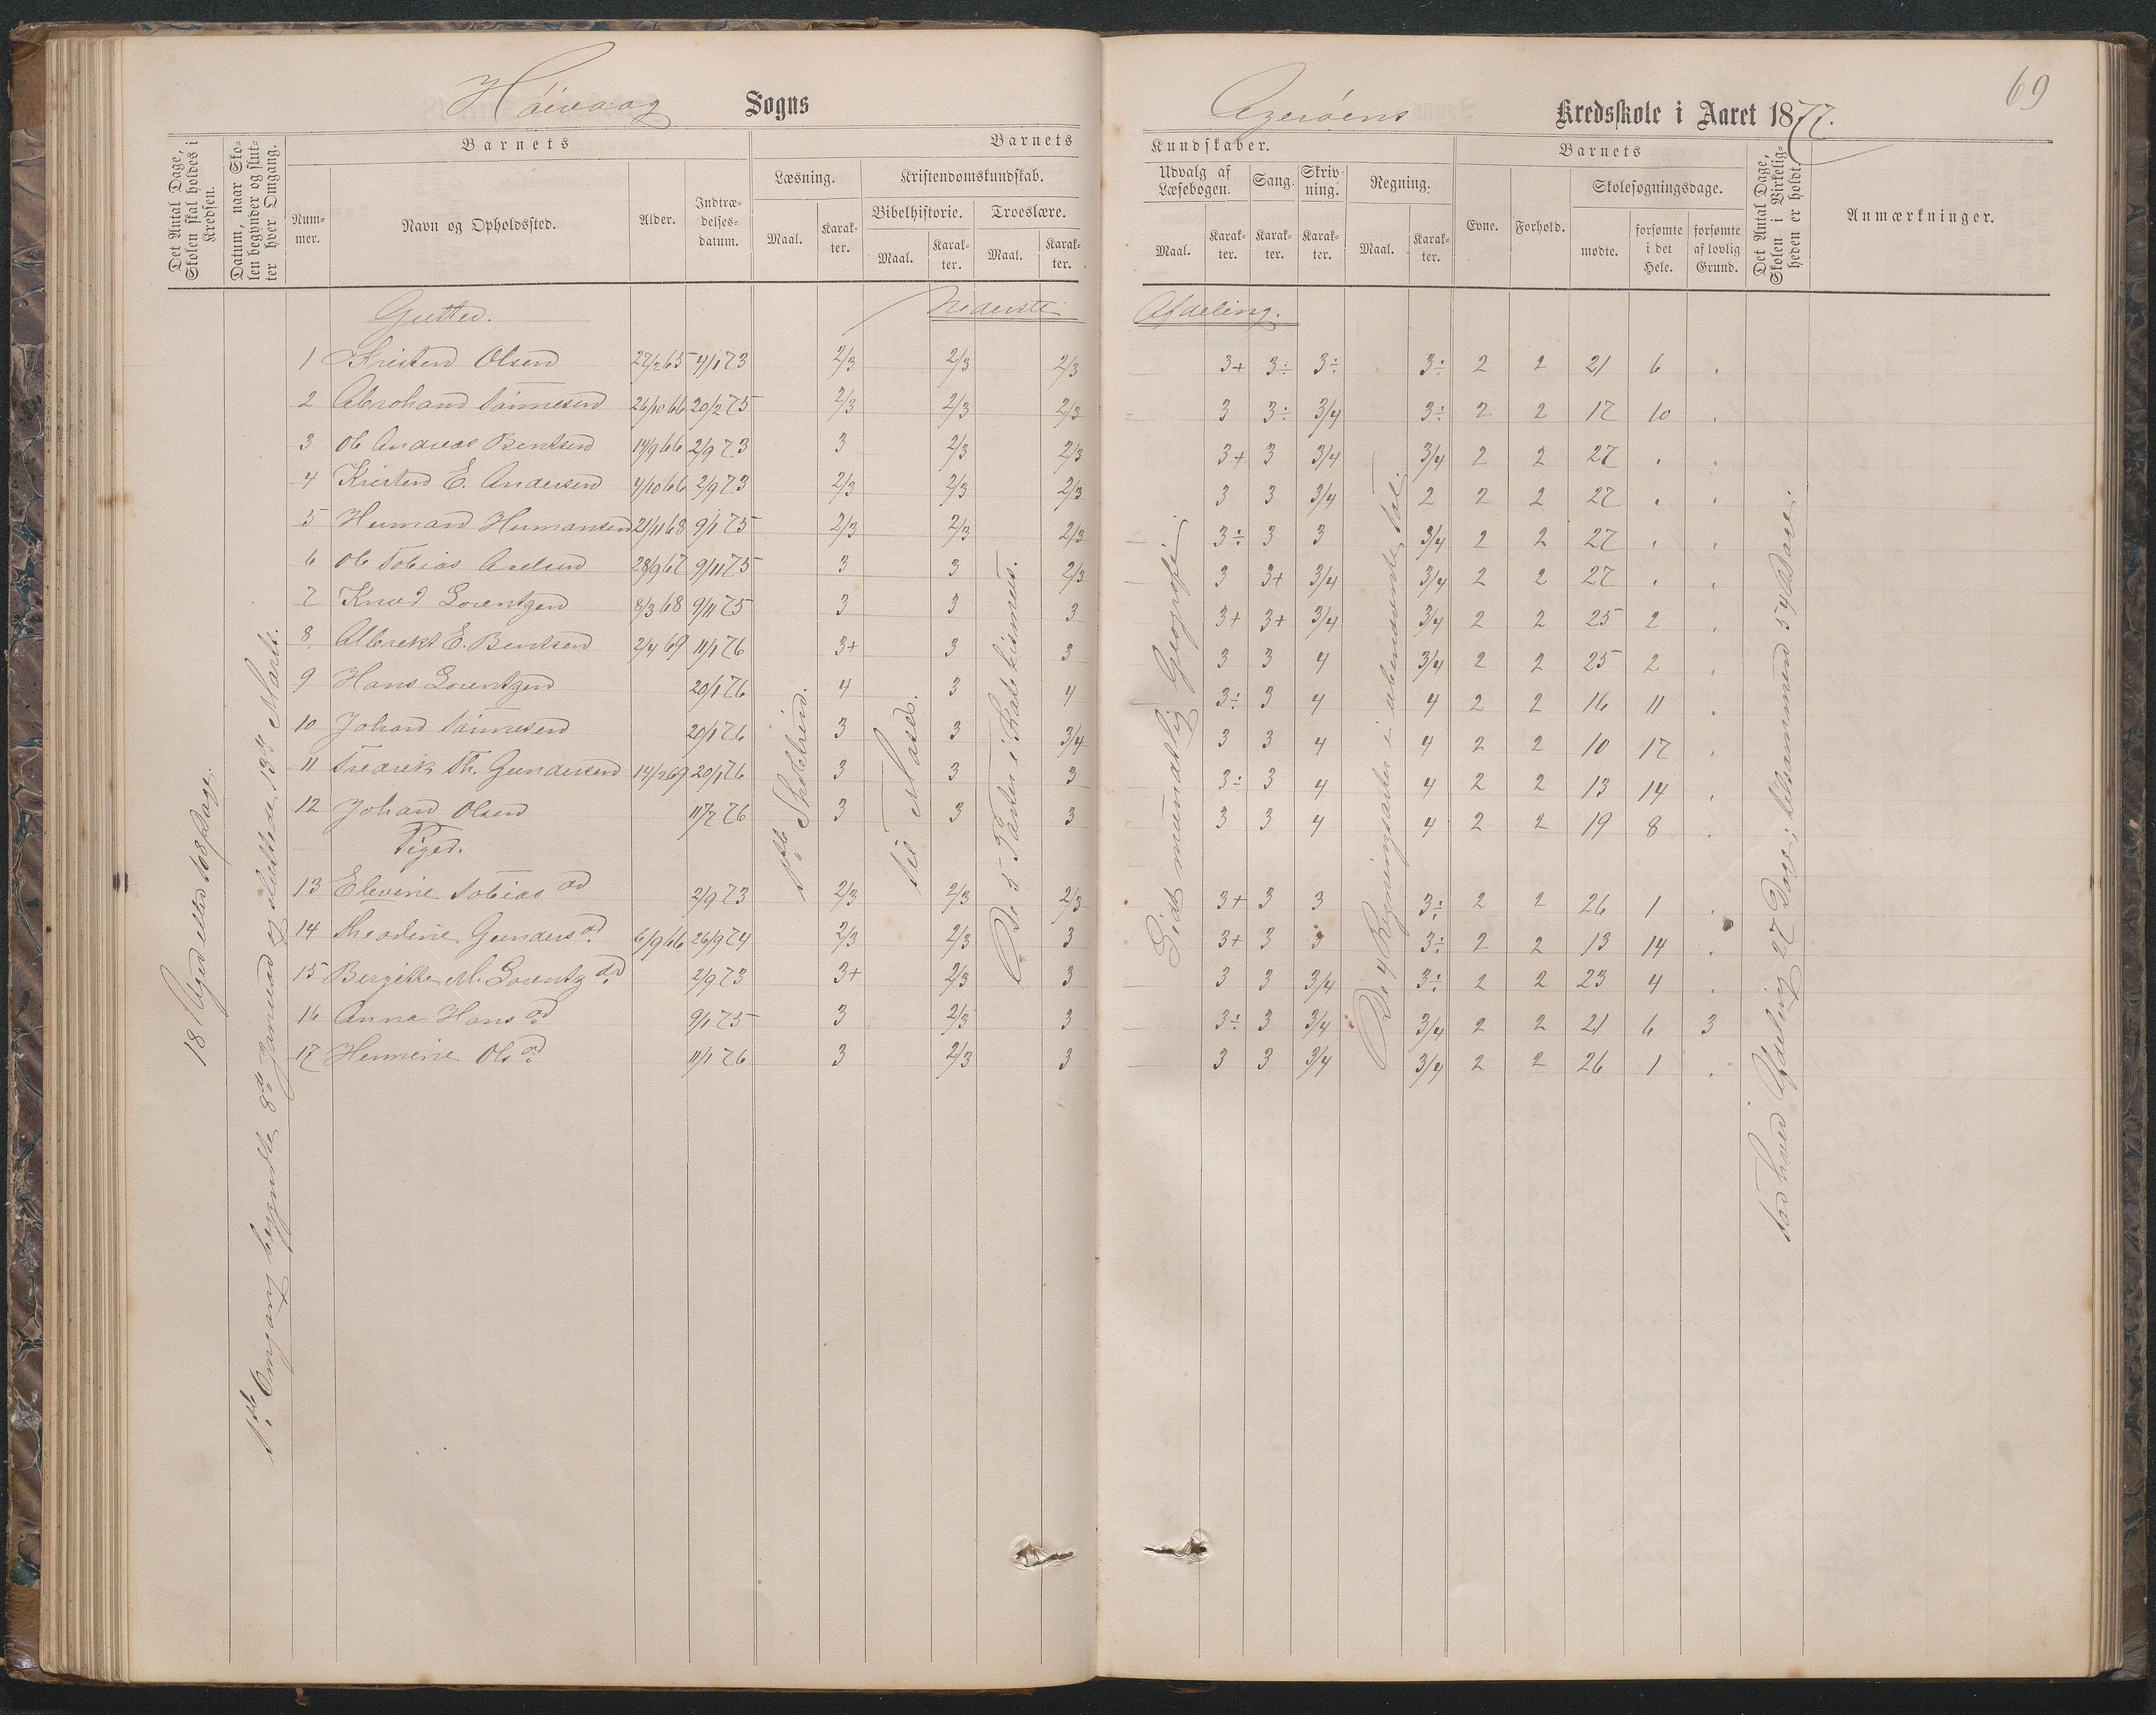 69
Høivaag Sogns
Agerøens Kredsskole i Aaret 1877.
Det Antal Dage, Skolen skal holdes i Kredsen.
Datum, naar Skolen begynder og slutter hver Omgang.
Barnets
Nummer.
Navn og Opholdssted.
Alder.
Indtrædelsesdatum.
Barnets
Læsning.
Maal.
Karakter.
Kristendomskundskab.
Bibelhistorie.
Maal.
Karakter.
Troeslære.
Maal.
Karakter.
Kundskaber.
Udvalg af Læsebogen.
Maal.
Karakter.
Sang.
Karakter.
Skrivning.
Karakter.
Regning.
Maal.
Karakter.
Barnets
Evne.
Forhold.
Skolesøgningsdage.
mødte.
forsømte i det Hele.
forsømte af lovlig Grund.
Det Antal Dage, Skolen i Virkeligheden er holdt.
Anmærkninger.
18 Uger eller 108 Dage.
1ste Omgang begyndte 8de Januar og sluttede 13de Marts.
Gutter. Nederste Afdeling.
1 Kristen Olsen 27/2 65 4/1 73 2/3 2/3 2/3 3+ 3÷ 3÷ 3÷ 2 2 21 6 .
2 Abraham Tønnesen 26/10 66 20/2 75 2/3 2/3 2/3 3 3÷ 3/4 3÷ 2 2 17 10 .
3 Ole Andreas Bentsen 14/9 66 2/9 73 3 2/3 2/3 3+ 3 3/4 3/4 2 2 27 . .
4 Kristen E. Andersen 4/10 66 2/9 73 2/3 2/3 2/3 3 3 3/4 2 2 2 27 . .
5 Herman Hermansen 21/11 68 9/1 75 2/3 2/3 2/3 3÷ 3 3 3/4 2 2 27 . .
6 Ole Tobias Axelsen 28/9 67 9/11 75 3 3 2/3 3 3+ 3/4 3/4 2 2 27 . .
7 Knud Lorentzen 8/3 68 9/11 75 3 3 3 3+ 3+ 3/4 3/4 2 2 25 2 .
8 Albrekt E. Bentsen 2/4 69 11/1 76 3+ 3 3 3 3 4 3/4 2 2 25 2 .
9 Hans Lorentzen 20/1 76 4 3 4 3÷ 3 4 4 2 2 16 11 .
10 Johan Tønnesen 20/1 76 3 3 3/4 3 3 4 4 2 2 10 17 .
11 Fredrik Th. Gundersen 14/2 69 20/1 76 3 3 3 3÷ 3 4 4 2 2 13 14 .
12 Johan Olsen 11/2 76 3 3 3 3 3 4 4 2 2 19 8 .
Piger.
13 Elevine Tobias D. 2/9 73 2/3 2/3 2/3 3+ 3 3 3÷ 2 2 26 1 .
14 Theodine Gunders D. 6/9 66 26/9 74 2/3 2/3 3 3+ 3 3 3÷ 2 2 13 14 .
15 Bergitte M. Lorentz D. 2/9 73 3+ 2/3 3 3 3 3/4 3÷ 2 2 23 4 .
16 Anna Hans D. 9/1 75 3 2/3 3 3÷ 3 3/4 3/4 2 2 21 6 3
17 Hermine Ols D. 11/1 76 3 2/3 3 3 3 3/4 3/4 2 2 26 1 .
1ste Skoletrin.
til Moses.
De 5 Parter i Katekismus.
Lidt mundtlig Geografi.
De 4 Regningsarter i ubenævnte Tal.
For hver Afdeling 27 Dage; tilsammen 54 Dage.